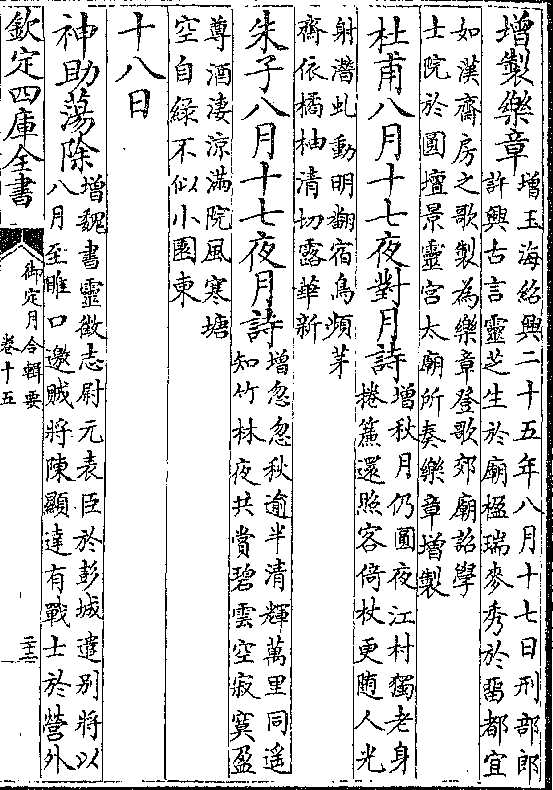 增製樂章增玉海紹興二十五年八月十七日刑部郎
許興古言靈芝生於廟楹瑞麥秀於留都宜
如漢齋房之歌製為樂章登歌郊廟詔學
士院於圓壇景靈宮太廟所奏樂章增製
杜甫八月十七夜對月詩增秋月仍圓夜江村獨老身
捲簾還照客倚杖更隨人光
射潛虬動明翻宿鳥頻茅
齋依橘柚清切露華新
朱子八月十七夜月詩增忽忽秋逾半清輝萬里同遥
知竹林夜共賞碧雲空寂寞盈
尊酒淒涼滿院風寒塘
空自緑不似小園東
十八日
神助蕩除增魏書靈徵志尉元表臣於彭城遣别將以
八月至睢口邀賊將陳顯達有戰士於營外
欽定四庫全書
御定月令輯要
卷十五
二十三